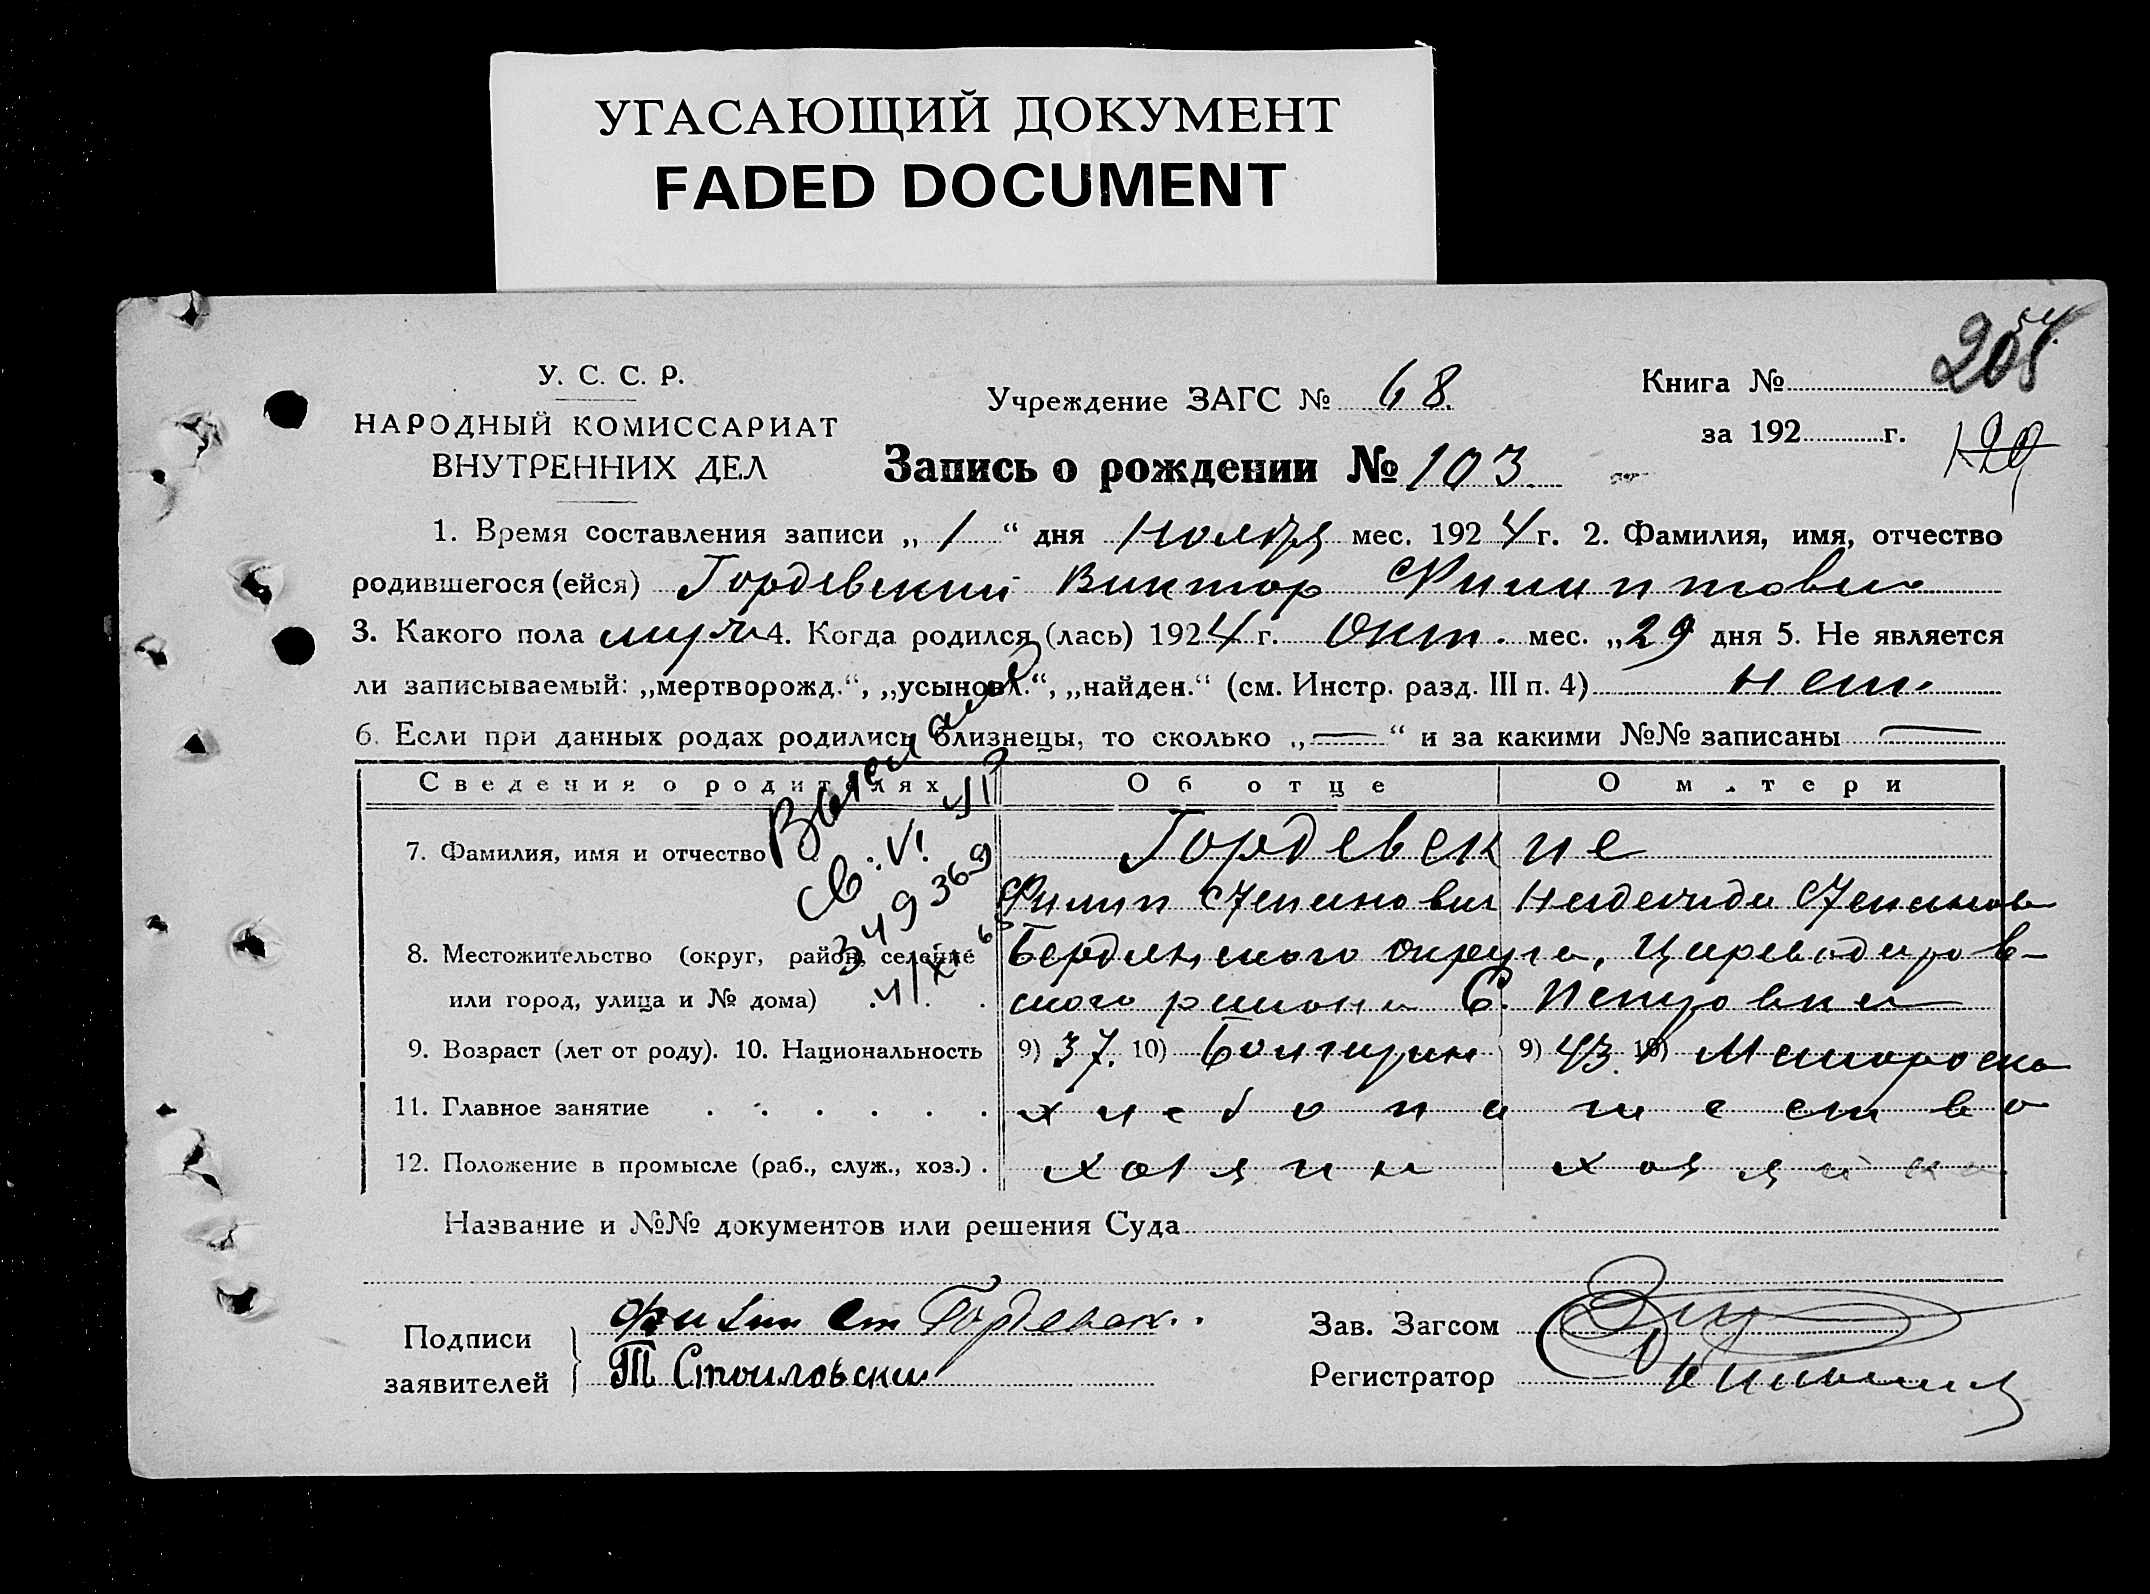 УГАСАЮЩИЙ ДОКУМЕНТ
FADED DOCUMENT
У. С. С. Р.
НАРОДНЫЙ КОМИССАРИАТ
ВНУТРЕННИХ ДЕЛ
Учреждение ЗАГС № 68
Книга №
за 192 г.
Запись о рождении № 103
1. Время составления записи „ 1 “ дня Ноября мес. 1924 г. 2. Фамилия, имя, отчество
родившегося (ейся) Гордевский Виктор Филиппович
3. Какого пола муж 4. Когда родился (лась) 1924 г. Окт. мес. „29 дня 5. Не является
ли записываемый: „мертворожд.“, „усыновл.“, „найден.“ (см. Инстр. разд. III п. 4) нет
6. Если при данных родах родились близнецы, то сколько „—“ и за какими №№ записаны —
Сведения о родителях Об отце О м.тери
7. Фамилия, имя и отчество Гордевские
Филип Степанович Надежда Степанов
8. Местожительство (округ, район, селение Бердянского округа, Цареводаров-
или город, улица и № дома) ского района С. Петровка
9. Возраст (лет от роду). 10. Национальность 9) 37. 10) Болгарин 9) 43. 10) Малороска
11. Главное занятие хлебопашество
12. Положение в промысле (раб., служ., хоз.) хозяин хозяйка
Название и №№ документов или решения Суда
Подписи заявителей Филип Ст Гордевск..
Т Стоиловски
Зав. Загсом
Регистратор